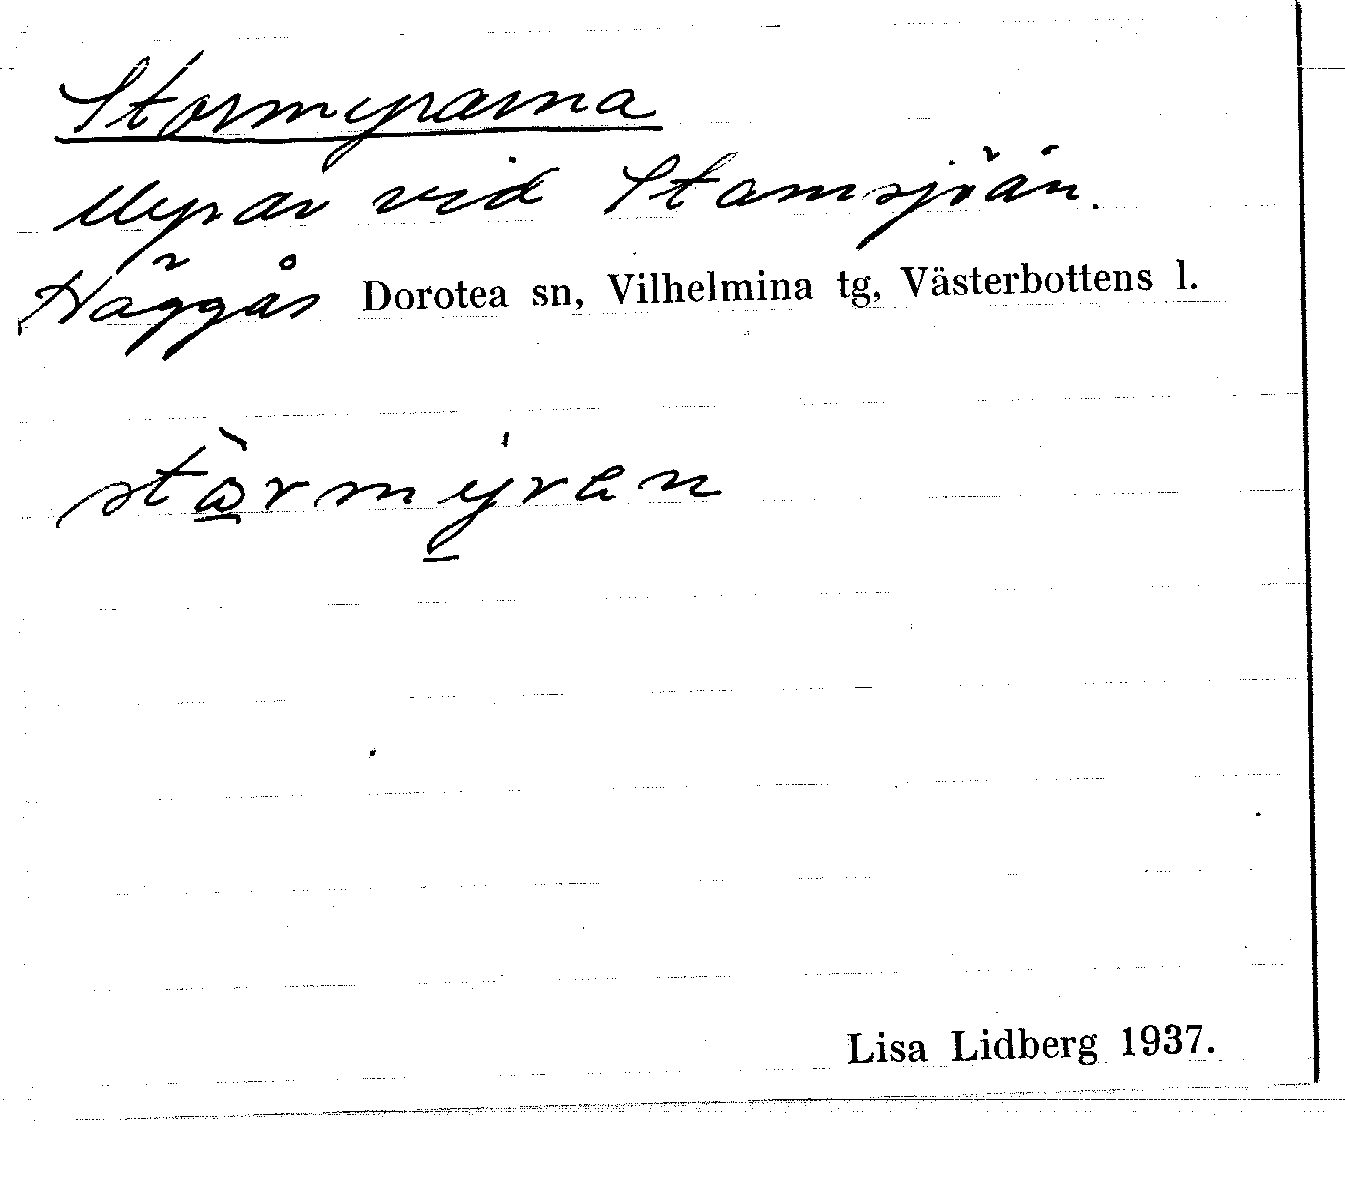 Stormyrarna
Myrar vid Stamsjöån.
Häggås Dorotea sn, Vilhelmina tg, Västerbottens l.
stòrmýran
Lisa Lidberg 1937.